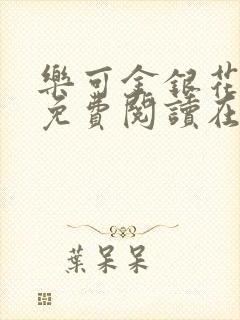 樂可金銀花
免費閱讀在
葉呆呆